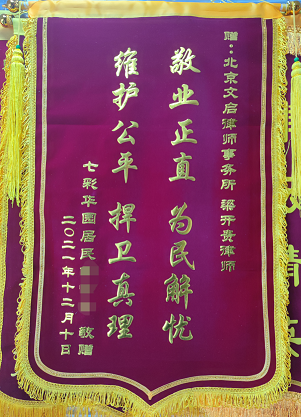 赠：北京文启律师事务所 梁开贵律师
敬业正直 为民解忧
维护公平 捍卫真理
七彩华园居民 敬赠
二〇二一年十二月十日
精英